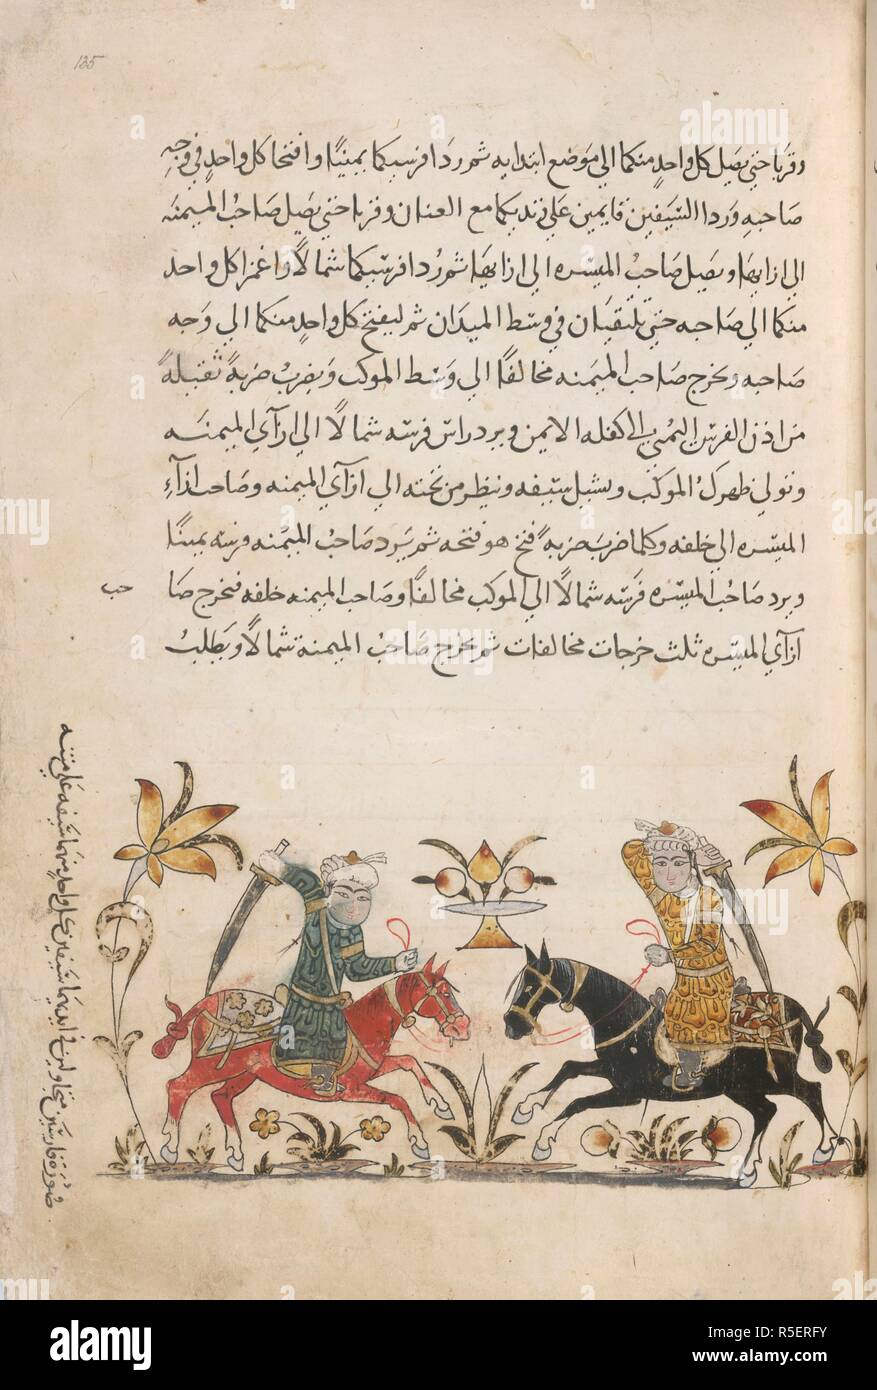 135
وقربا حتي يصل كل واحد منكما الي موضع ابتدايه ثم ردا فرسيكما يمينًا وافتحا كل واحد في وجه
صاحبه وردا السيفين قايمين علي زنديكما مع العنان وقربا حتي يصل صاحب الميمنه
الي ازايها ويصل صاحب الميسره الي ازايها ثم ردا فرسيكما شمالًا واغمزا كل واحد
منكما الي صاحبه حتي تلتقيان في وسط الميدان ثم ليفتح كل واحد منكما الي وجه
صاحبه ويخرج صاحب الميمنه مخالفًا الي وسط الموكب ويضرب ضربةً ثقيلةً
من اذن الفرس اليمني الي كفله الايمن ويرد راس فرسه شمالًا الي ازآي الميمنه
ونولي ظهرك الموكب ويشيل سيفه وينظر من تحته الي ازآي الميمنه وصاحب ازآء
الميسره الي خلفه وكلما ضرب ضربةً فتح هو فتحه ثم يرد صاحب الميمنه فرسه يمينًا
ويرد صاحب الميسره فرسه شمالًا الي الموكب مخالفًا وصاحب الميمنه خلفه فيخرج صا
حب
ازآي الميسره ثلث خرجات مخالفات ثم يخرج صاحب الميمنة شمالًا ويطلب
صورة فارسين
كل واحد منهما سيفه علي متنه
alamy
Image ID: R5ERFY
www.alamy.com